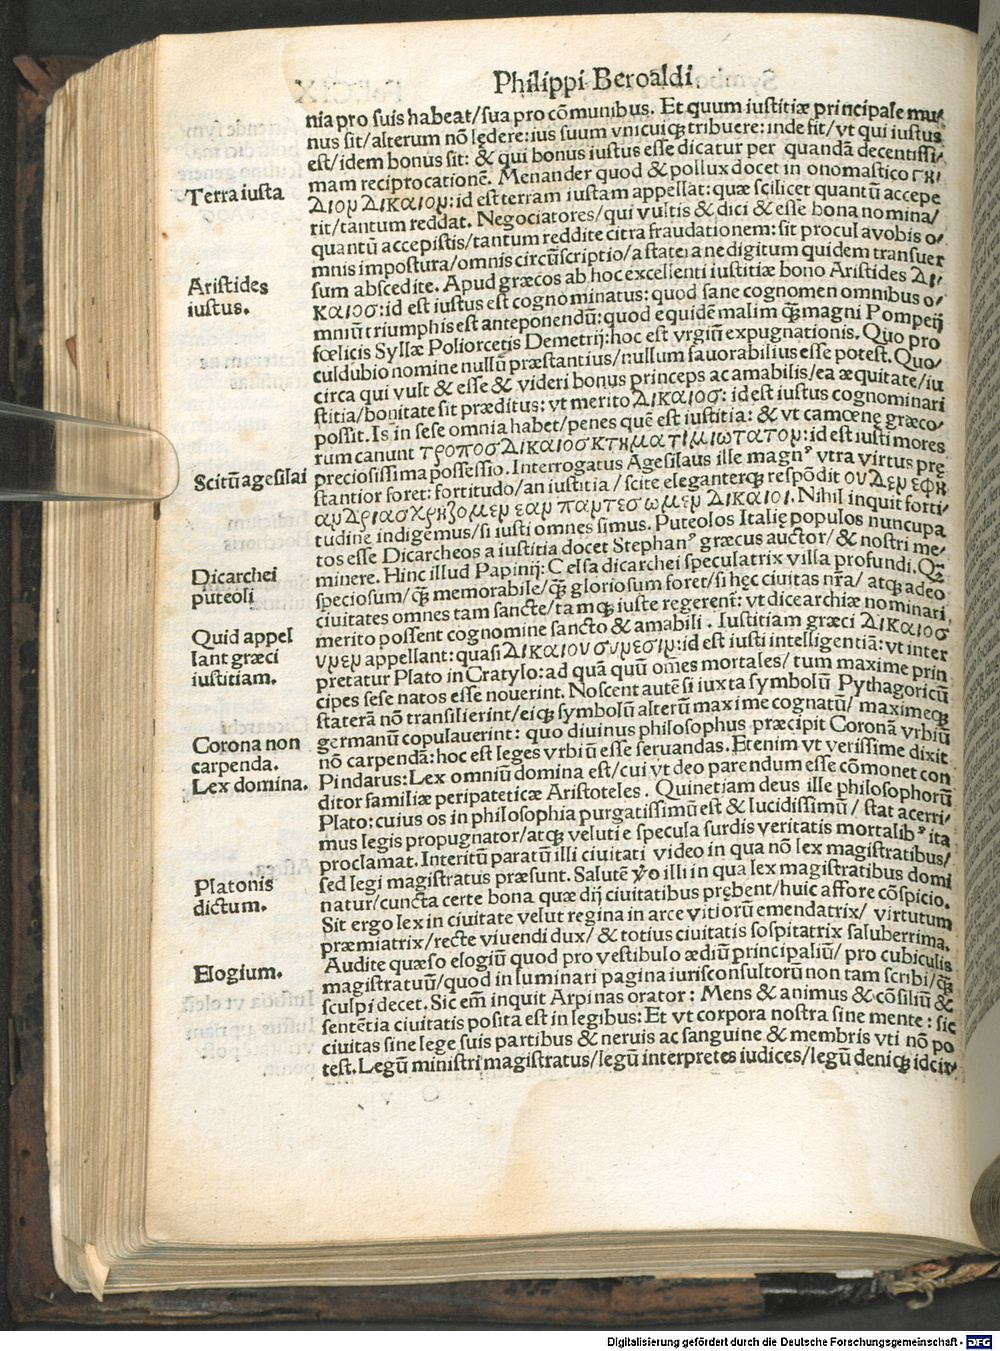 Philippi Beroaldi.
nia pro suis habeat/sua pro cōmunibus. Et quum iustitiæ principale mu/
nus sit/alterum nō lędere: ius suum vnicuiqʒ tribuere: inde fit/vt qui iustus
est/idem bonus sit: & qui bonus iustus esse dicatur per quandā decentissi/
mam reciprocationē. Menander quod & pollux docet in onomastico γΗ/
Terra iusta
ΔΙΟΝ ΔΙΚΑΙΟΝ: id est terram iustam appellat: quæ scilicet quantū accepe
rit/tantum reddat. Negociatores/qui vultis & dici & esse bona nomina/
quantū accepistis/tantum reddite citra fraudationem: sit procul avobis o/
mnis impostura/omnis circūscriptio/a statera ne digitum quidem transuer
sum abscedite. Apud græcos ab hoc excellenti iustitiæ bono Aristides ΔΙ/
Aristides
iustus.
ΚΑΙΟΣ: id est iustus est cognominatus: quod sane cognomen omnibus o/
mniū triumphis est anteponendū: quod equidē malim qʒ magni Pompeij
fœlicis Syllæ Poliorcetis Demetrij: hoc est vrgiū expugnationis. Quo pro
culdubio nomine nullū præstantius/nullum fauorabilius esse potest. Quo/
circa qui vult & esse & videri bonus princeps ac amabilis/ea æquitate/iu
stitia/bonitate sit præditus: vt merito ΔΙΚΑΙΟΣ: id est iustus cognominari
possit. Is in sese omnia habet/penes quē est iustitia: & vt camœnę græco/
rum canunt ΤΡΟΠΟΣ ΔΙΚΑΙΟΣ ΚΤΗΜΑ ΤΙΜΙΩΤΑΤΟΝ: id est iusti mores
preciosissima possessio. Interrogatus Agesilaus ille magnꝰ vtra virtus pre
Scitū agesilai
stantior foret: fortitudo/an iustitia/scite eleganterqʒ respōdit ΟΥΔΕΝ ΕΦΗ
ΑΝΔΡΙΑΣ ΧΡΗΖΟΜΕΝ ΕΑΝ ΠΑΝΤΕΣ ΩΜΕΝ ΔΙΚΑΙΟΙ. Nihil inquit forti/
tudine indigemus/si iusti omnes simus. Puteolos Italię populos nuncupa
tos esse Dicarcheos a iustitia docet Stephanꝰ græcus auctor/& nostri me/
minere. Hinc illud Papinij: Celsa dicarchei speculatrix villa profundi. Qʒ
Dicarchei
puteoli
speciosum/qʒ memorabile/qʒ gloriosum foret/si hęc ciuitas nr̄a/ atqʒ adeo
ciuitates omnes tam sancte/tamqʒ iuste regerent̄: vt dicearchiæ nominari
merito possent cognomine sancto & amabili. Iustitiam græci ΔΙΚΑΙΟΣ
Quid appel
lant græci
iustitiam.
ΥΝΕΝ appellant: quasi ΔΙΚΑΙΟΥ ΣΥΝΕΣΙΝ: id est iusti intelligentiā: vt inter
pretatur Plato in Cratylo: ad quā quū omēs mortales/ tum maxime prin
cipes sese natos esse nouerint. Noscent autē si iuxta symbolū Pythagoricū
staterā nō transilierint/eiqʒ symbolū alterū maxime cognatū/ maximeqʒ
germanū copulauerint: quo diuinus philosophus præcipit Coronā vrbiū
Corona non
carpenda.
nō carpendā: hoc est leges vrbiū esse seruandas. Etenim vt verissime dixit
Lex domina.
Pindarus: Lex omniū domina est/cui vt deo parendum esse cōmonet con
ditor familiæ peripateticæ Aristoteles. Quinetiam deus ille philosophorū
Plato: cuius os in philosophia purgatissimū est & lucidissimū/ stat acerri/
mus legis propugnator/atqʒ veluti e specula surdis veritatis mortalibꝰ ita
proclamat. Interitū paratū illi ciuitati video in qua nō lex magistratibus/
Platonis
dictum.
sed legi magistratus præsunt. Salutē vo illi in qua lex magistratibus domi
natur/cuncta certe bona quæ dij ciuitatibus prębent/huic affore cōspicio.
Sit ergo lex in ciuitate velut regina in arce vitiorū emendatrix/ virtutum
præmiatrix/recte viuendi dux/ & totius ciuitatis sospitatrix saluberrima.
Elogium.
Audite quæso elogiū quod pro vestibulo ædiū principaliū/ pro cubiculis
magistratuū/quod in luminari pagina iurisconsultorū non tam scribi/qʒ
sculpi decet. Sic em̄ inquit Arpinas orator: Mens & animus & cōsiliū &
sentētia ciuitatis posita est in legibus: Et vt corpora nostra sine mente: sic
ciuitas sine lege suis partibus & neruis ac sanguine & membris vti nō po
test. Legū ministri magistratus/legū interpretes iudices/legū deniqʒ idcir/
Digitalisierung gefördert durch die Deutsche Forschungsgemeinschaft - DFG